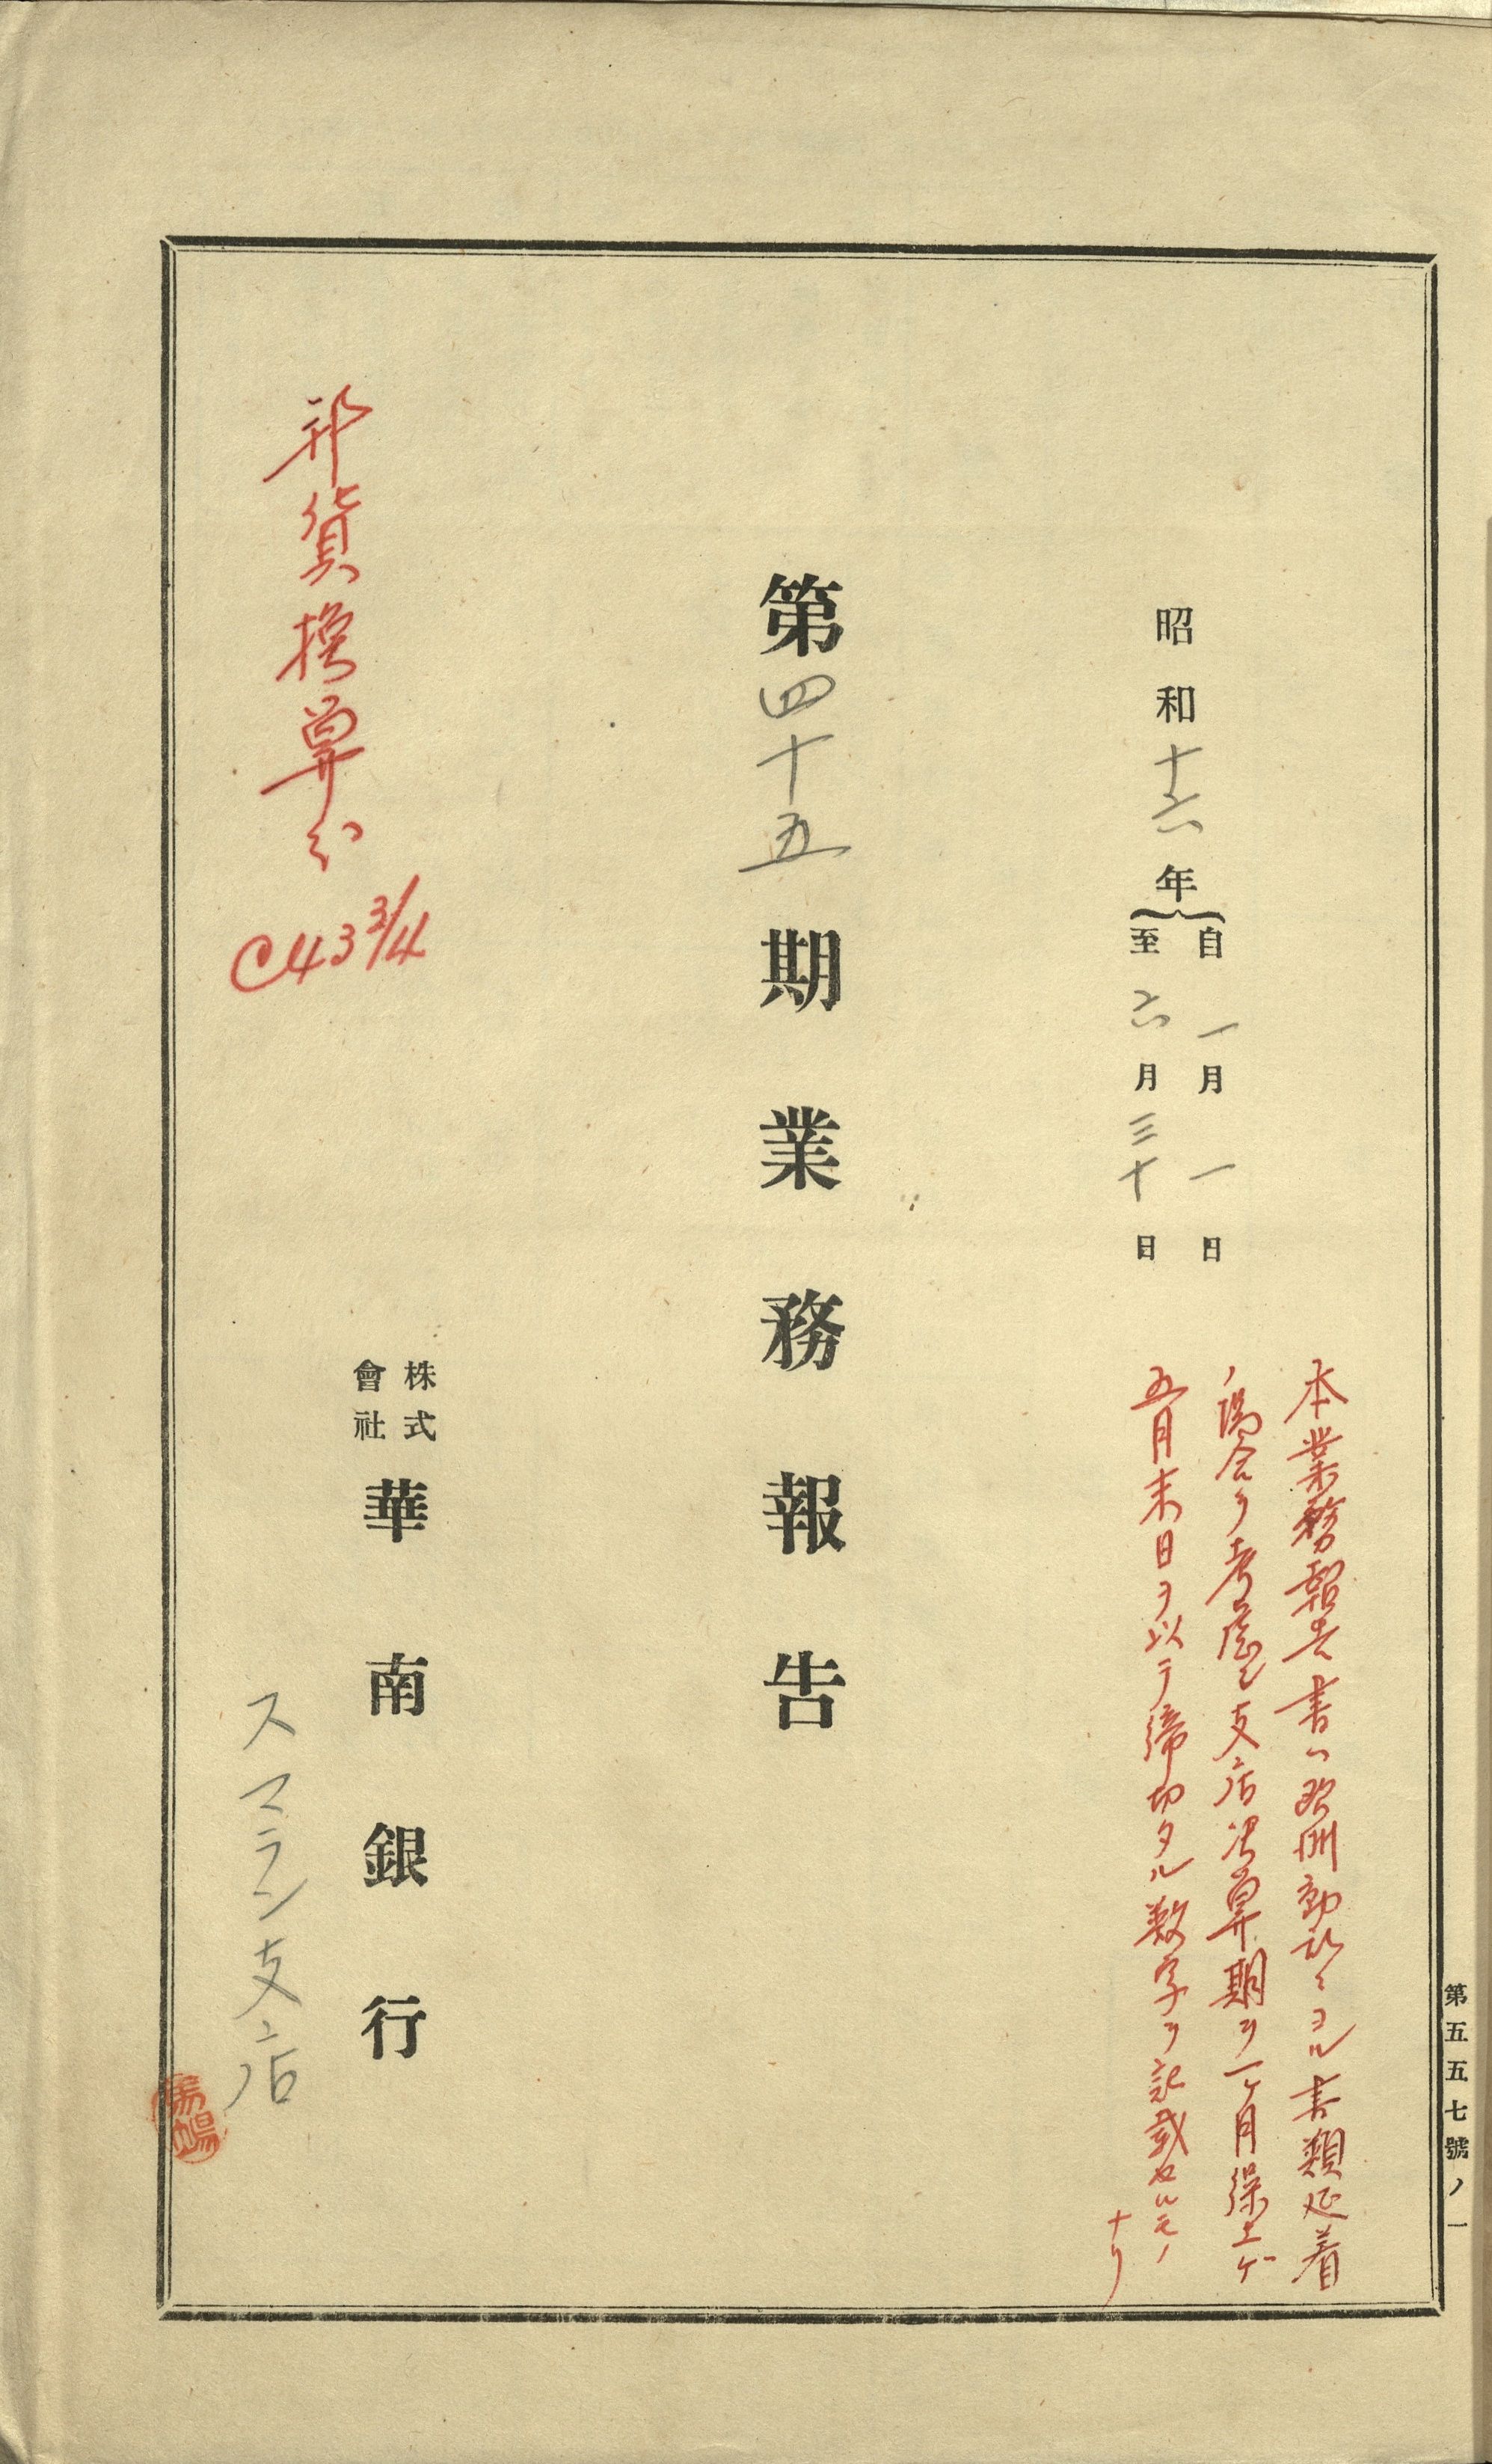 第五五七號ノ一
昭和十六年
自一月一日
至六月三十日
本業務報告書ハ欧洲動乱ニヨル書類延着
ノ場合ヲ考慮シ支店決算期ヲ一ヶ月繰上ゲ
五月末日ヲ以テ締切タル数字ヲ記載セルモノ
ナリ
第四十五期業務報告
株式
會社
華南銀行
スマラン支店
邦貨換算ハ
@43 3/4